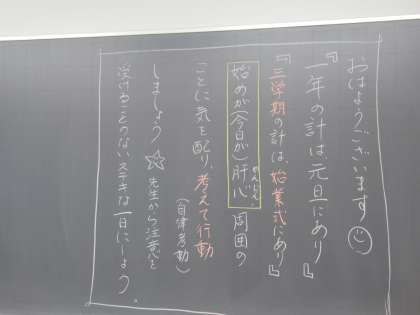 おはようございます
『一年の計は、元旦にあり』
『三学期の計は、始業式にあり』
始めが(今日が)肝心 周囲の
かんじん
ことに気を配り、考えて行動
(自律考動)
しましょう☆先生から注意を
受けることのないステキな一日にしよう。